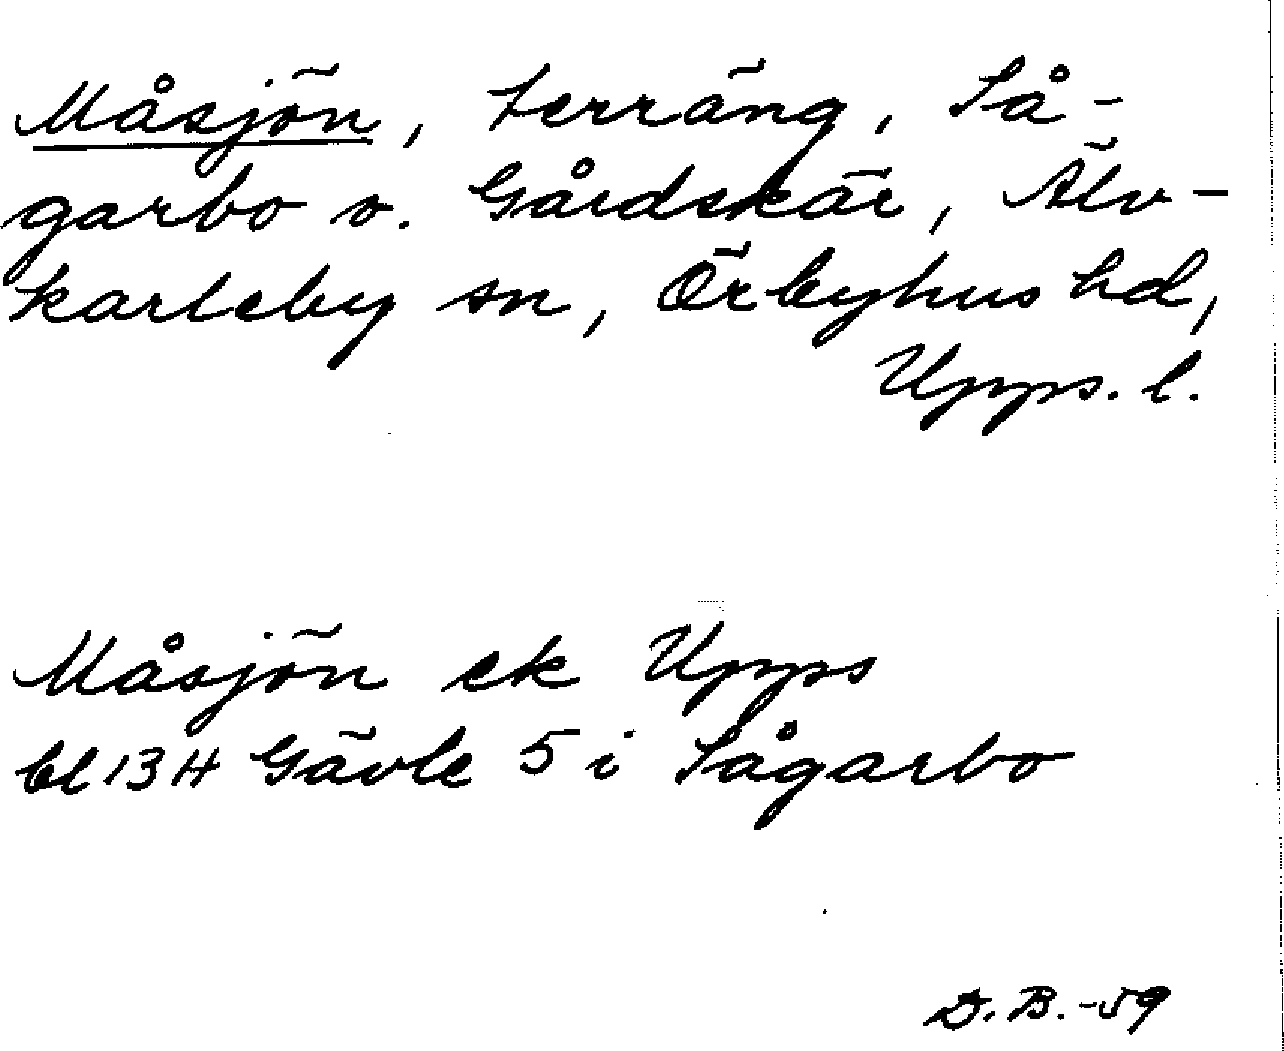 Måsjön, terräng, Så-
garbo o. Gårdskär, Älv-
karleby sn, Örbyhus hd,
Upps. l.
Måsjön ek Upps
bl 13H Gävle 5 i Sågarbo
D.B.-59